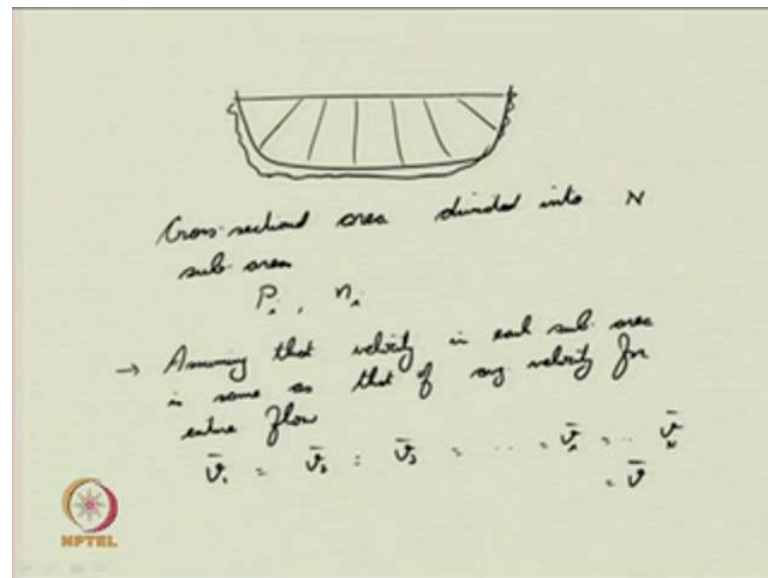 Cross-sectional area divided into N
sub-area
Pᵢ, nᵢ
→ Assuming that velocity in each sub-area
is same as that of avg velocity for
entire flow
v̄₁ = v̄₂ = v̄₃ = ... = v̄ᵢ = .. v̄_N
= v̄
NPTEL